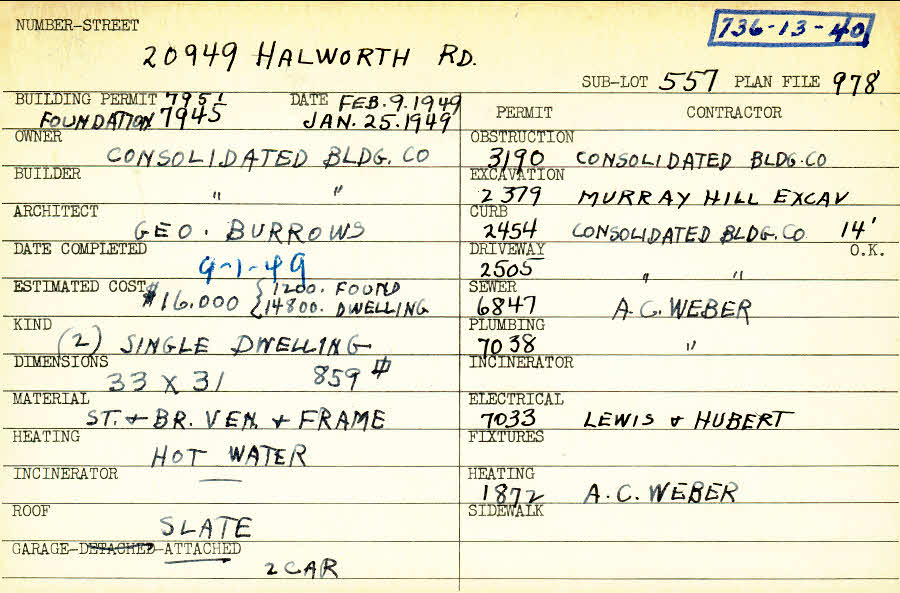 NUMBER-STREET
736-13-40
20949 HALWORTH RD.
SUB-LOT 557 PLAN FILE 978
BUILDING PERMIT 7951 DATE FEB. 9. 1949
FOUNDATION 7945 JAN. 25. 1949
PERMIT CONTRACTOR
OWNER
CONSOLIDATED BLDG. CO
BUILDER
" "
ARCHITECT
GEO. BURROWS
DATE COMPLETED
9-1-49
ESTIMATED COST $16,000 { 1200. FOUND
14800. DWELLING
KIND
(2) SINGLE DWELLING
DIMENSIONS
33 X 31 859 #
MATERIAL
ST. + BR. VEN. + FRAME
HEATING
HOT WATER
INCINERATOR
—
ROOF
SLATE
GARAGE-DETACHED-ATTACHED
2 CAR
OBSTRUCTION
3190 CONSOLIDATED BLDG. CO
EXCAVATION
2379 MURRAY HILL EXCAV
CURB
2454 CONSOLIDATED BLDG. CO 14'
DRIVEWAY O.K.
2505 " "
SEWER
6847 A.C. WEBER
PLUMBING
7038 "
INCINERATOR
ELECTRICAL
7033 LEWIS & HUBERT
FIXTURES
HEATING
1872 A.C. WEBER
SIDEWALK